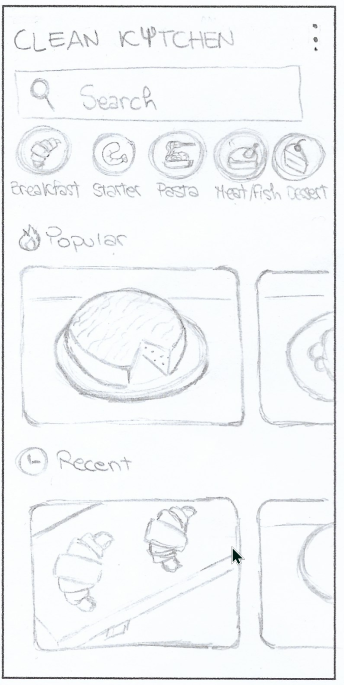 CLEAN KYTCHEN
Search
Breakfast Starter Pasta Meat/Fish Dessert
Popular
Recent